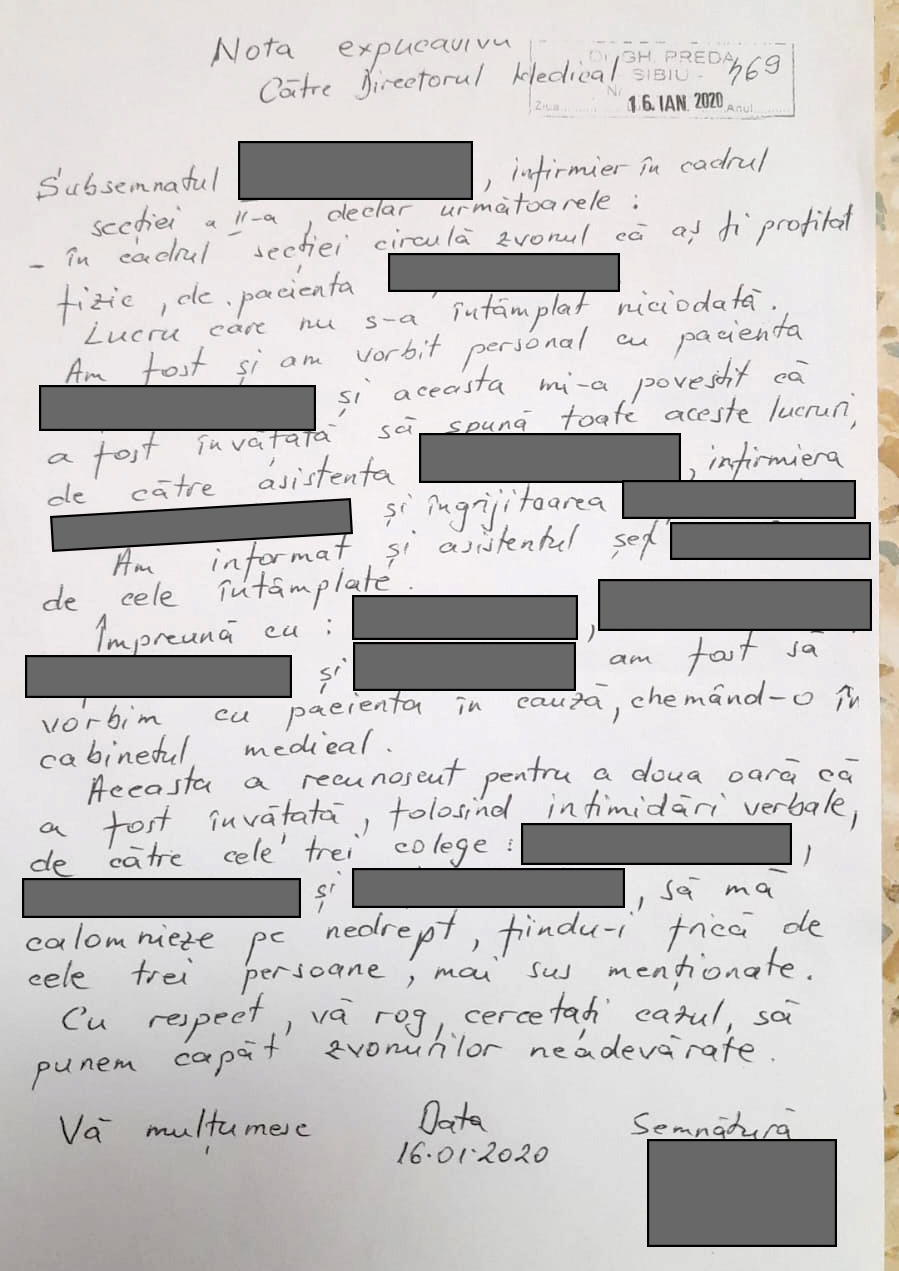 Nota explicativă
Către Directorul Medical
Dr. GH. PREDA
SIBIU -
Nr. 469
Ziua 16. IAN. 2020 Anul
Subsemnatul , infirmier în cadrul
secției a II-a, declar următoarele :
- în cadrul secției circulă zvonul că aș fi profitat
fizic, de pacienta
Lucru care nu s-a întâmplat niciodată.
Am fost și am vorbit personal cu pacienta
și aceasta mi-a povestit că
a fost învățată să spună toate aceste lucruri,
de către asistenta , infirmiera
și îngrijitoarea
Am informat și asistentul șef
de cele întâmplate.
Împreună cu : ,
și am fost să
vorbim cu pacienta în cauză, chemând-o în
cabinetul medical.
Aceasta a recunoscut pentru a doua oară că
a fost învățată, folosind intimidări verbale,
de către cele trei colege : ,
și , să mă
calomnieze pe nedrept, fiindu-i frică de
cele trei persoane, mai sus menționate.
Cu respect, vă rog, cercetați cazul, să
punem capăt zvonurilor neadevărate.
Vă mulțumesc Data Semnătură
16.01.2020